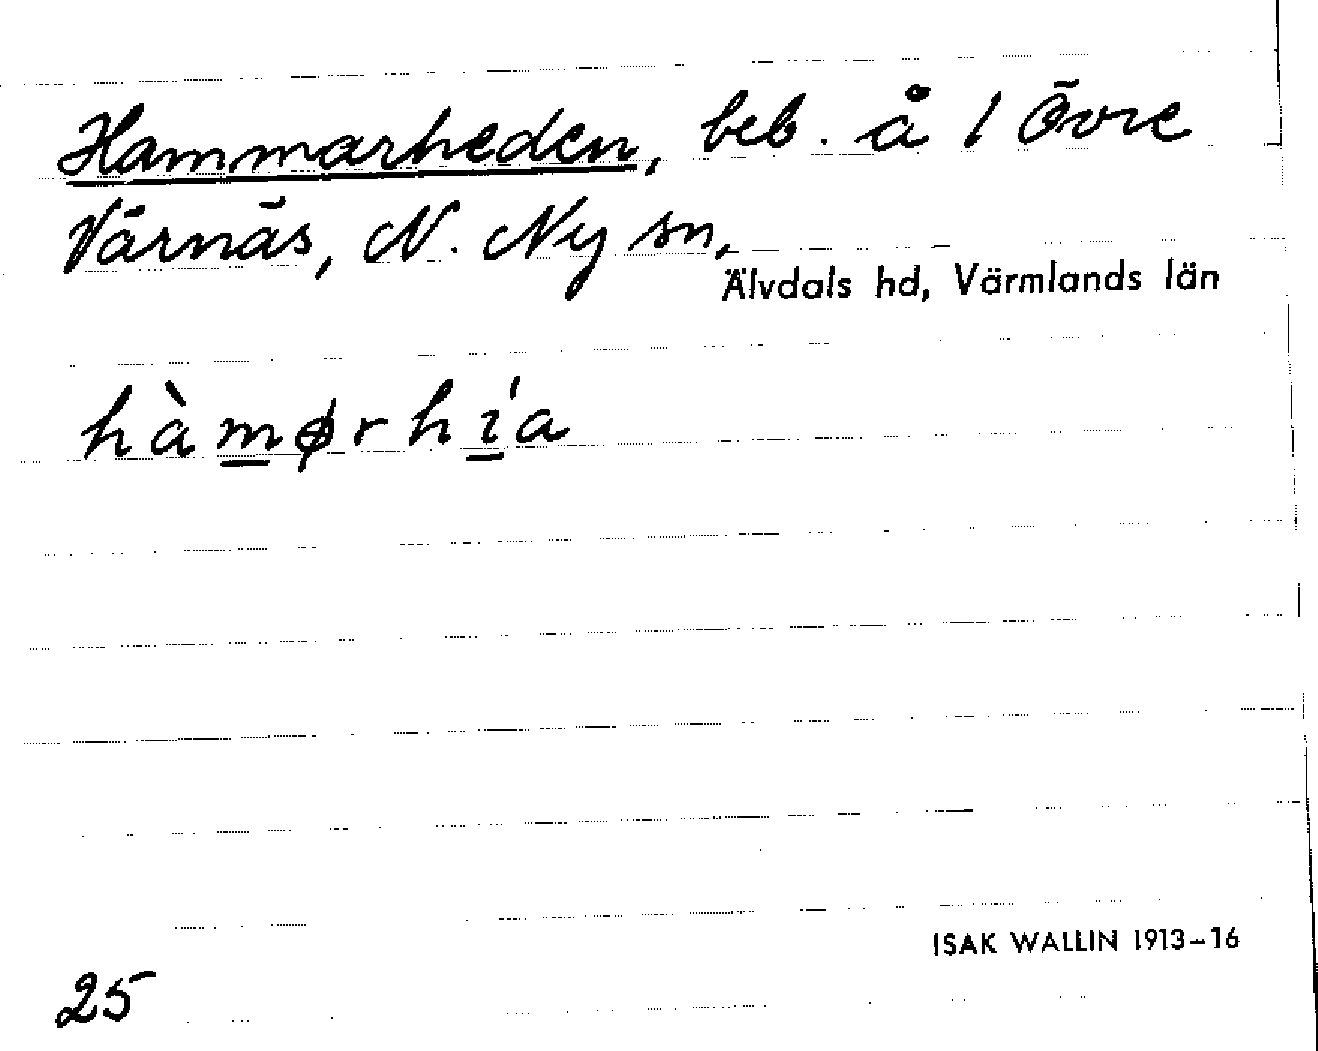 Hammarheden, beb. å 1 Övre
Värnäs, N. Ny sn,
Älvdals hd, Värmlands län
hàmørhi'a
ISAK WALLIN 1913-16
25